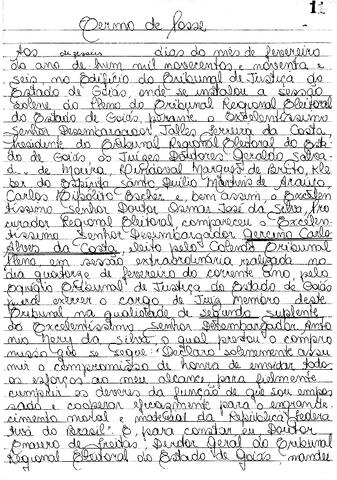 12
Termo de Posse
Aos dezesseis dias do mês de fevereiro
do ano de hum mil novecentos e noventa e
seis, no Edifício do Tribunal de Justiça do
Estado de Goiás, onde se instalou a sessão
solene do Pleno do Tribunal Regional Eleitoral
do Estado de Goiás, perante o Excelentíssimo
Senhor Desembargador Jalles Ferreira da Costa,
Presidente do Tribunal Regional Eleitoral do Esta-
do de Goiás, os Juízes Doutores Geraldo Salva-
dor de Moura, Marques de Brito, Kle
ber do Espírito Santo, Duílio Martins de Araújo,
Carlos Hipólito Escher e, bem assim, o Excelen
tíssimo Senhor Doutor Osmar José da Silva, Pro
curador Regional Eleitoral, compareceu o Excelen
tíssimo Senhor Desembargador Gercino Carlos
Alves da Costa, eleito pelo Colendo Tribunal
Pleno em sessão extraordinária realizada no
dia quatorze de fevereiro do corrente ano, pelo
Egrégio Tribunal de Justiça do Estado de Goiás
para exercer o cargo de Juiz Membro deste
Tribunal na qualidade de segundo suplente
do Excelentíssimo Senhor Desembargador Antô
nio Nery da Silva, o qual prestou o compro
misso que se segue: "Declaro solenemente assu
mir o compromisso de honra de envidar todos
os esforços ao meu alcance para fielmente
cumprir os deveres da função de que sou empos
sado e cooperar eficazmente para o engrande
cimento moral e material da República Federa
tiva do Brasil". E, para constar eu, Doutor
de Freitas, Diretor Geral do Tribunal
Regional Eleitoral do Estado de Goiás, mandei